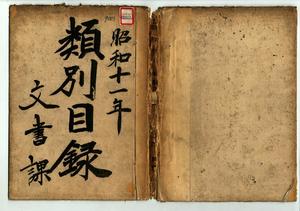 昭和十一年
類別目録
文書課